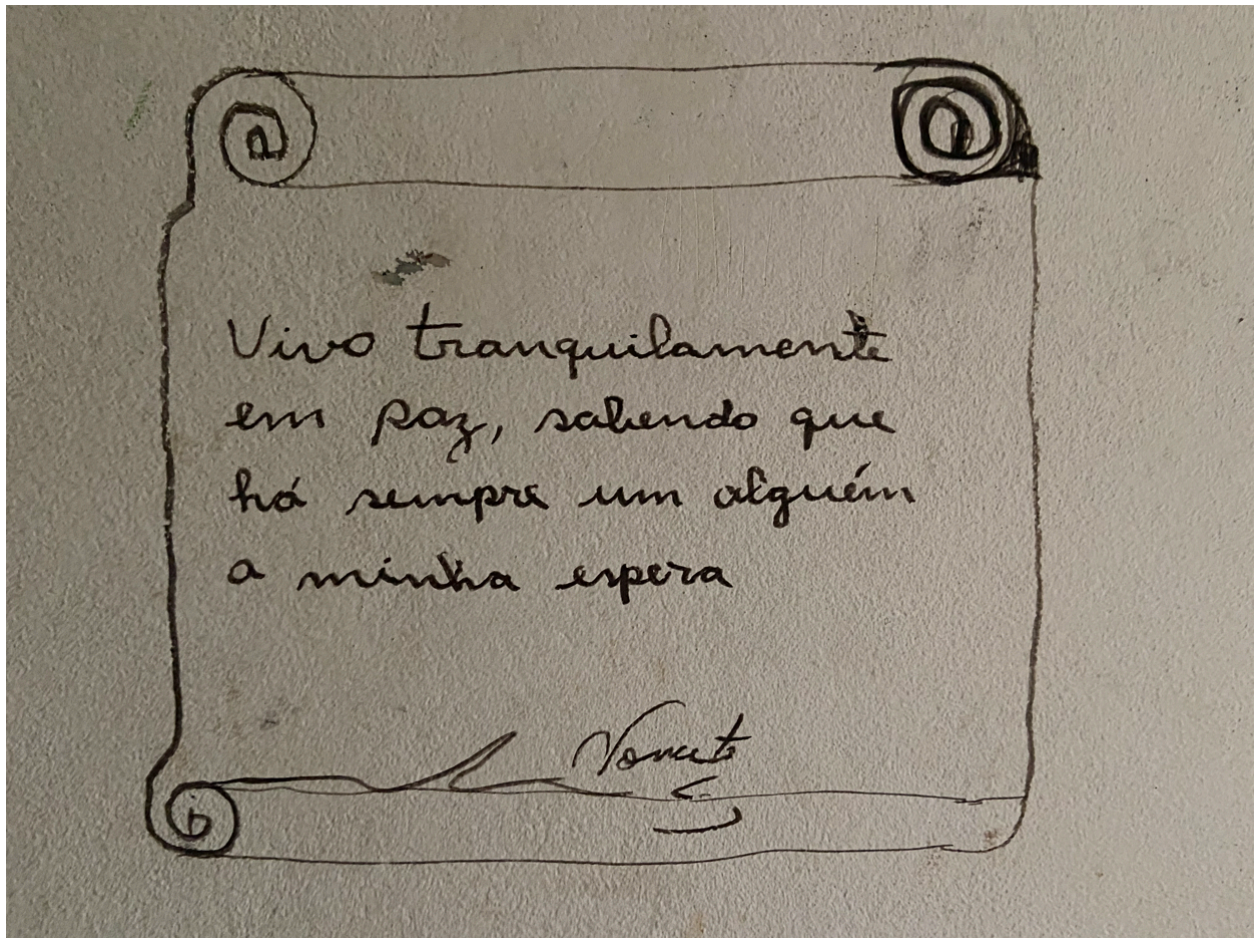 Vivo tranquilamente
em paz, sabendo que
há sempre um alguém
a minha espera